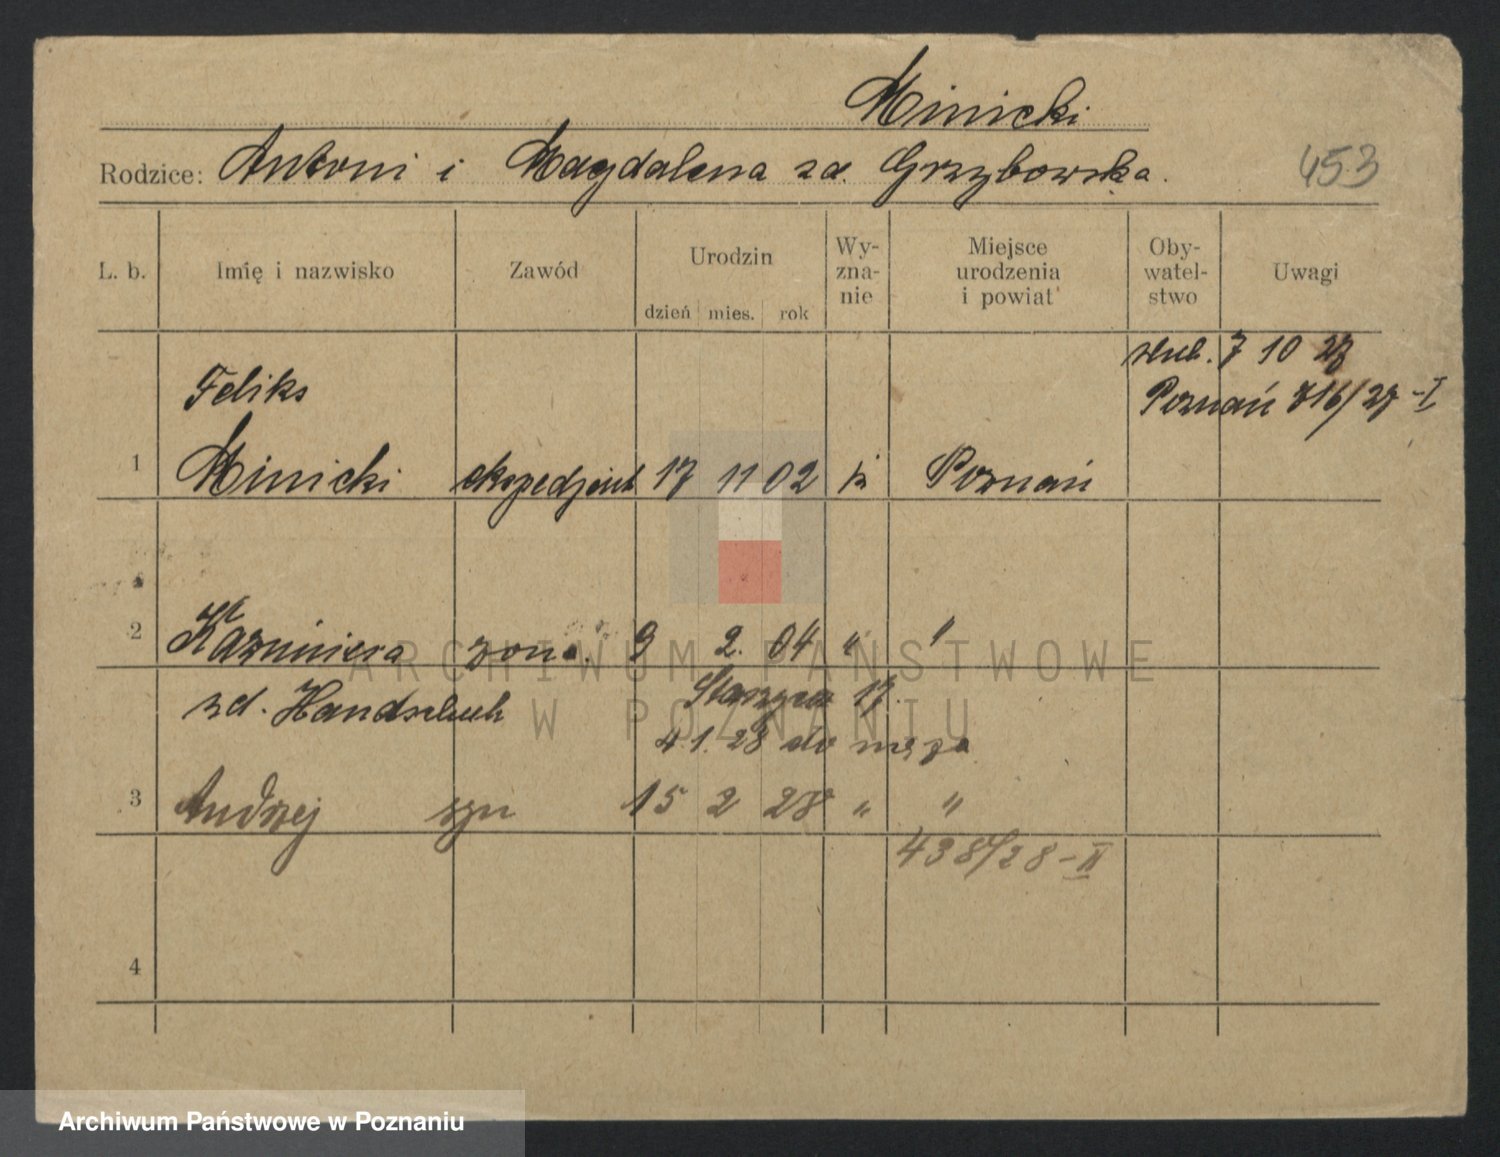 Minicki
Rodzice: Antoni i Magdalena zd. Grzybowska.
453
L. b. Imię i nazwisko Zawód Urodzin dzień mies. rok Wy-zna-nie Miejsce urodzenia i powiat Oby-watel-stwo Uwagi
ślub. 7 10 27
Poznań 716/27 -I
Feliks
1 Minicki ekspedjent 17 11 02 k Poznań
2 Kazimiera żona. 9 2. 04 " "
zd. Handschuh 17.
4.1.28 do męża
3 Andrzej syn 15 2 28 " "
438/28-II
4
ARCHIWUM PAŃSTWOWE
W POZNANIU
Archiwum Państwowe w Poznaniu